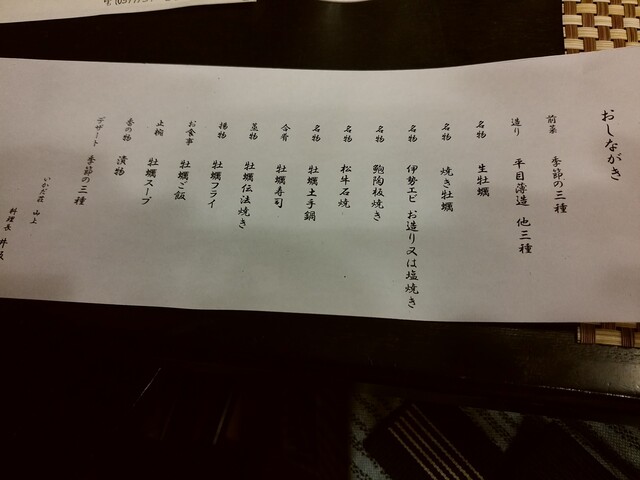 おしながき
前菜 季節の三種
造り 平目薄造 他三種
名物 生牡蠣
名物 焼き牡蠣
名物 伊勢エビ お造り又は塩焼き
名物 鮑陶板焼き
名物 松牛石焼
名物 牡蠣土手鍋
合肴 牡蠣寿司
蒸物 牡蠣伝法焼き
揚物 牡蠣フライ
お食事 牡蠣ご飯
止椀 牡蠣スープ
香の物 漬物
デザート 季節の三種
いかだ荘 山上
料理長 井坂